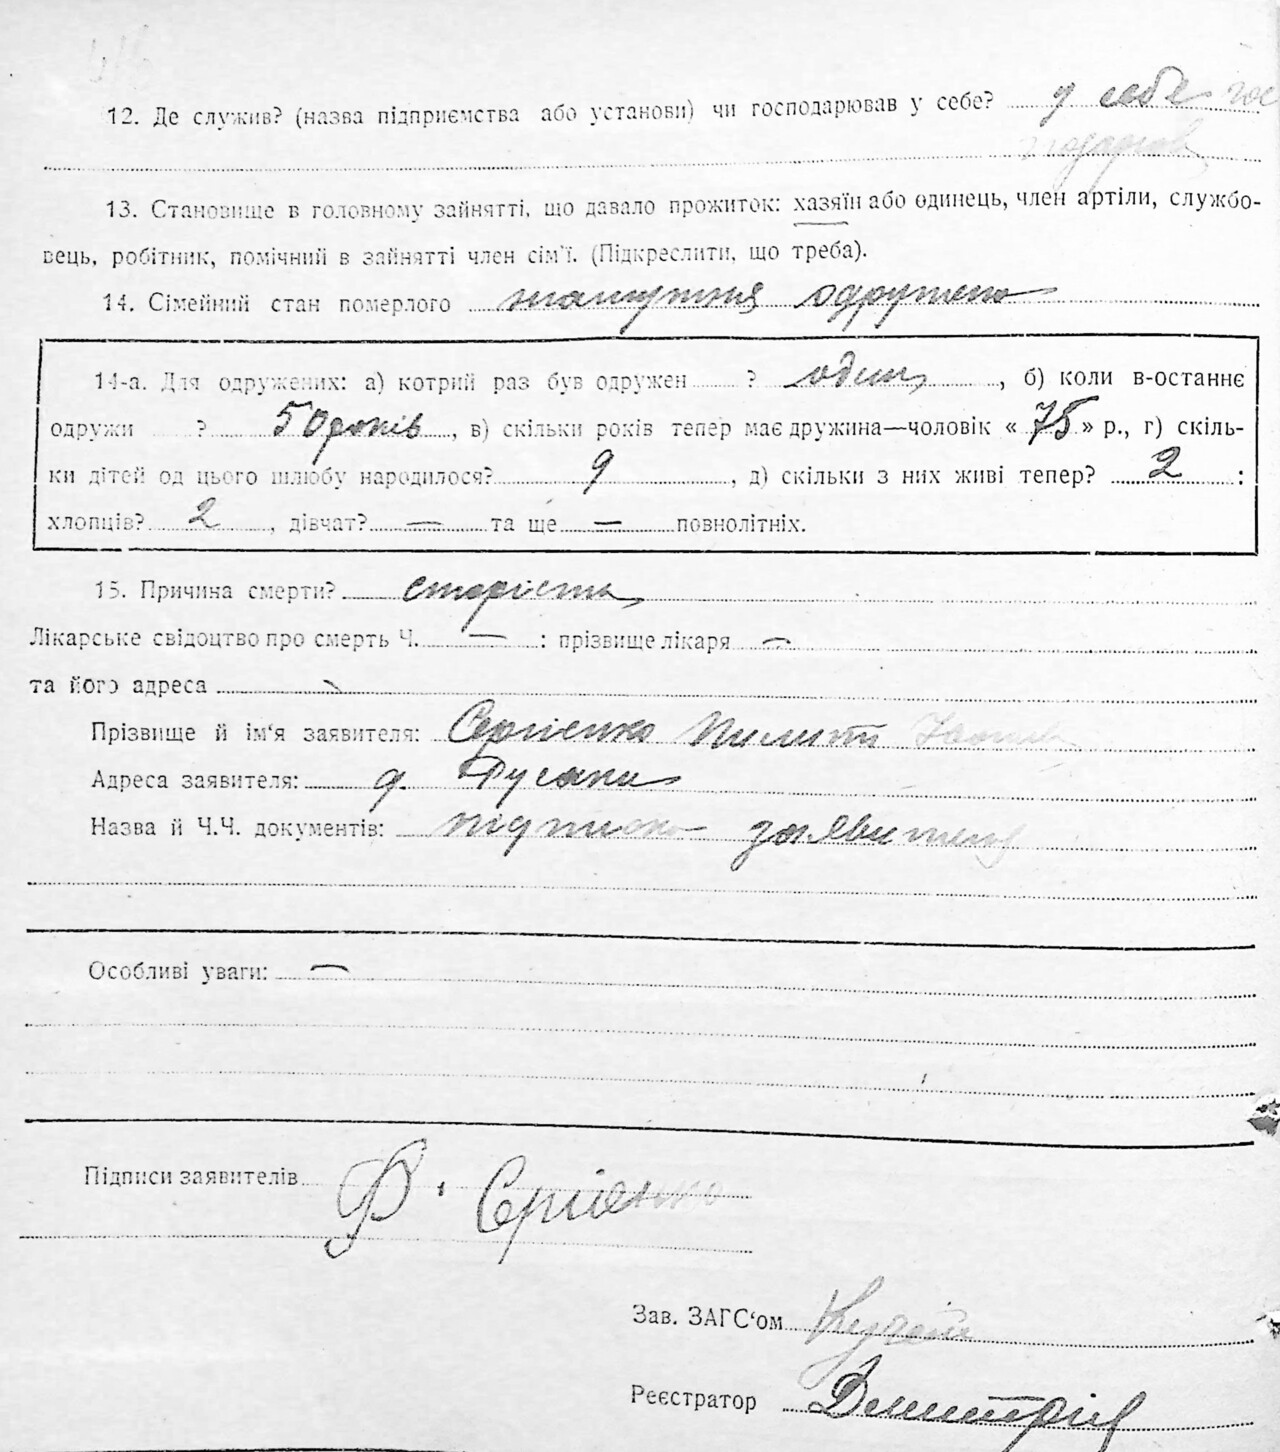 12. Де служив? (назва підприємства або установи) чи господарював у себе? у себе гос
подарюв
13. Становище в головному зайнятті, що давало прожиток: хазяїн або одинець, член артіли, службо-
вець, робітник, помічний в зайнятті член сім'ї. (Підкреслити, що треба).
14. Сімейний стан померлого одружено
14-а. Для одружених: а) котрий раз був одружен ? один, б) коли в-останнє
одружи ? 50 років, в) скільки років тепер має дружина—чоловік « 75 » р., г) скіль-
ки дітей од цього шлюбу народилося? 9, д) скільки з них живі тепер? 2 :
хлопців? 2, дівчат? — та ще — повнолітніх.
15. Причина смерти? старість
Лікарське свідоцтво про смерть Ч. — : прізвище лікаря —
та його адреса —
Прізвище й ім'я заявителя: Сергієнко
Адреса заявителя: Русани
Назва й Ч.Ч. документів: підписка заявителя
Особливі уваги: —
Підписи заявителів Сергієнко
Зав. ЗАГС'ом
Реєстратор